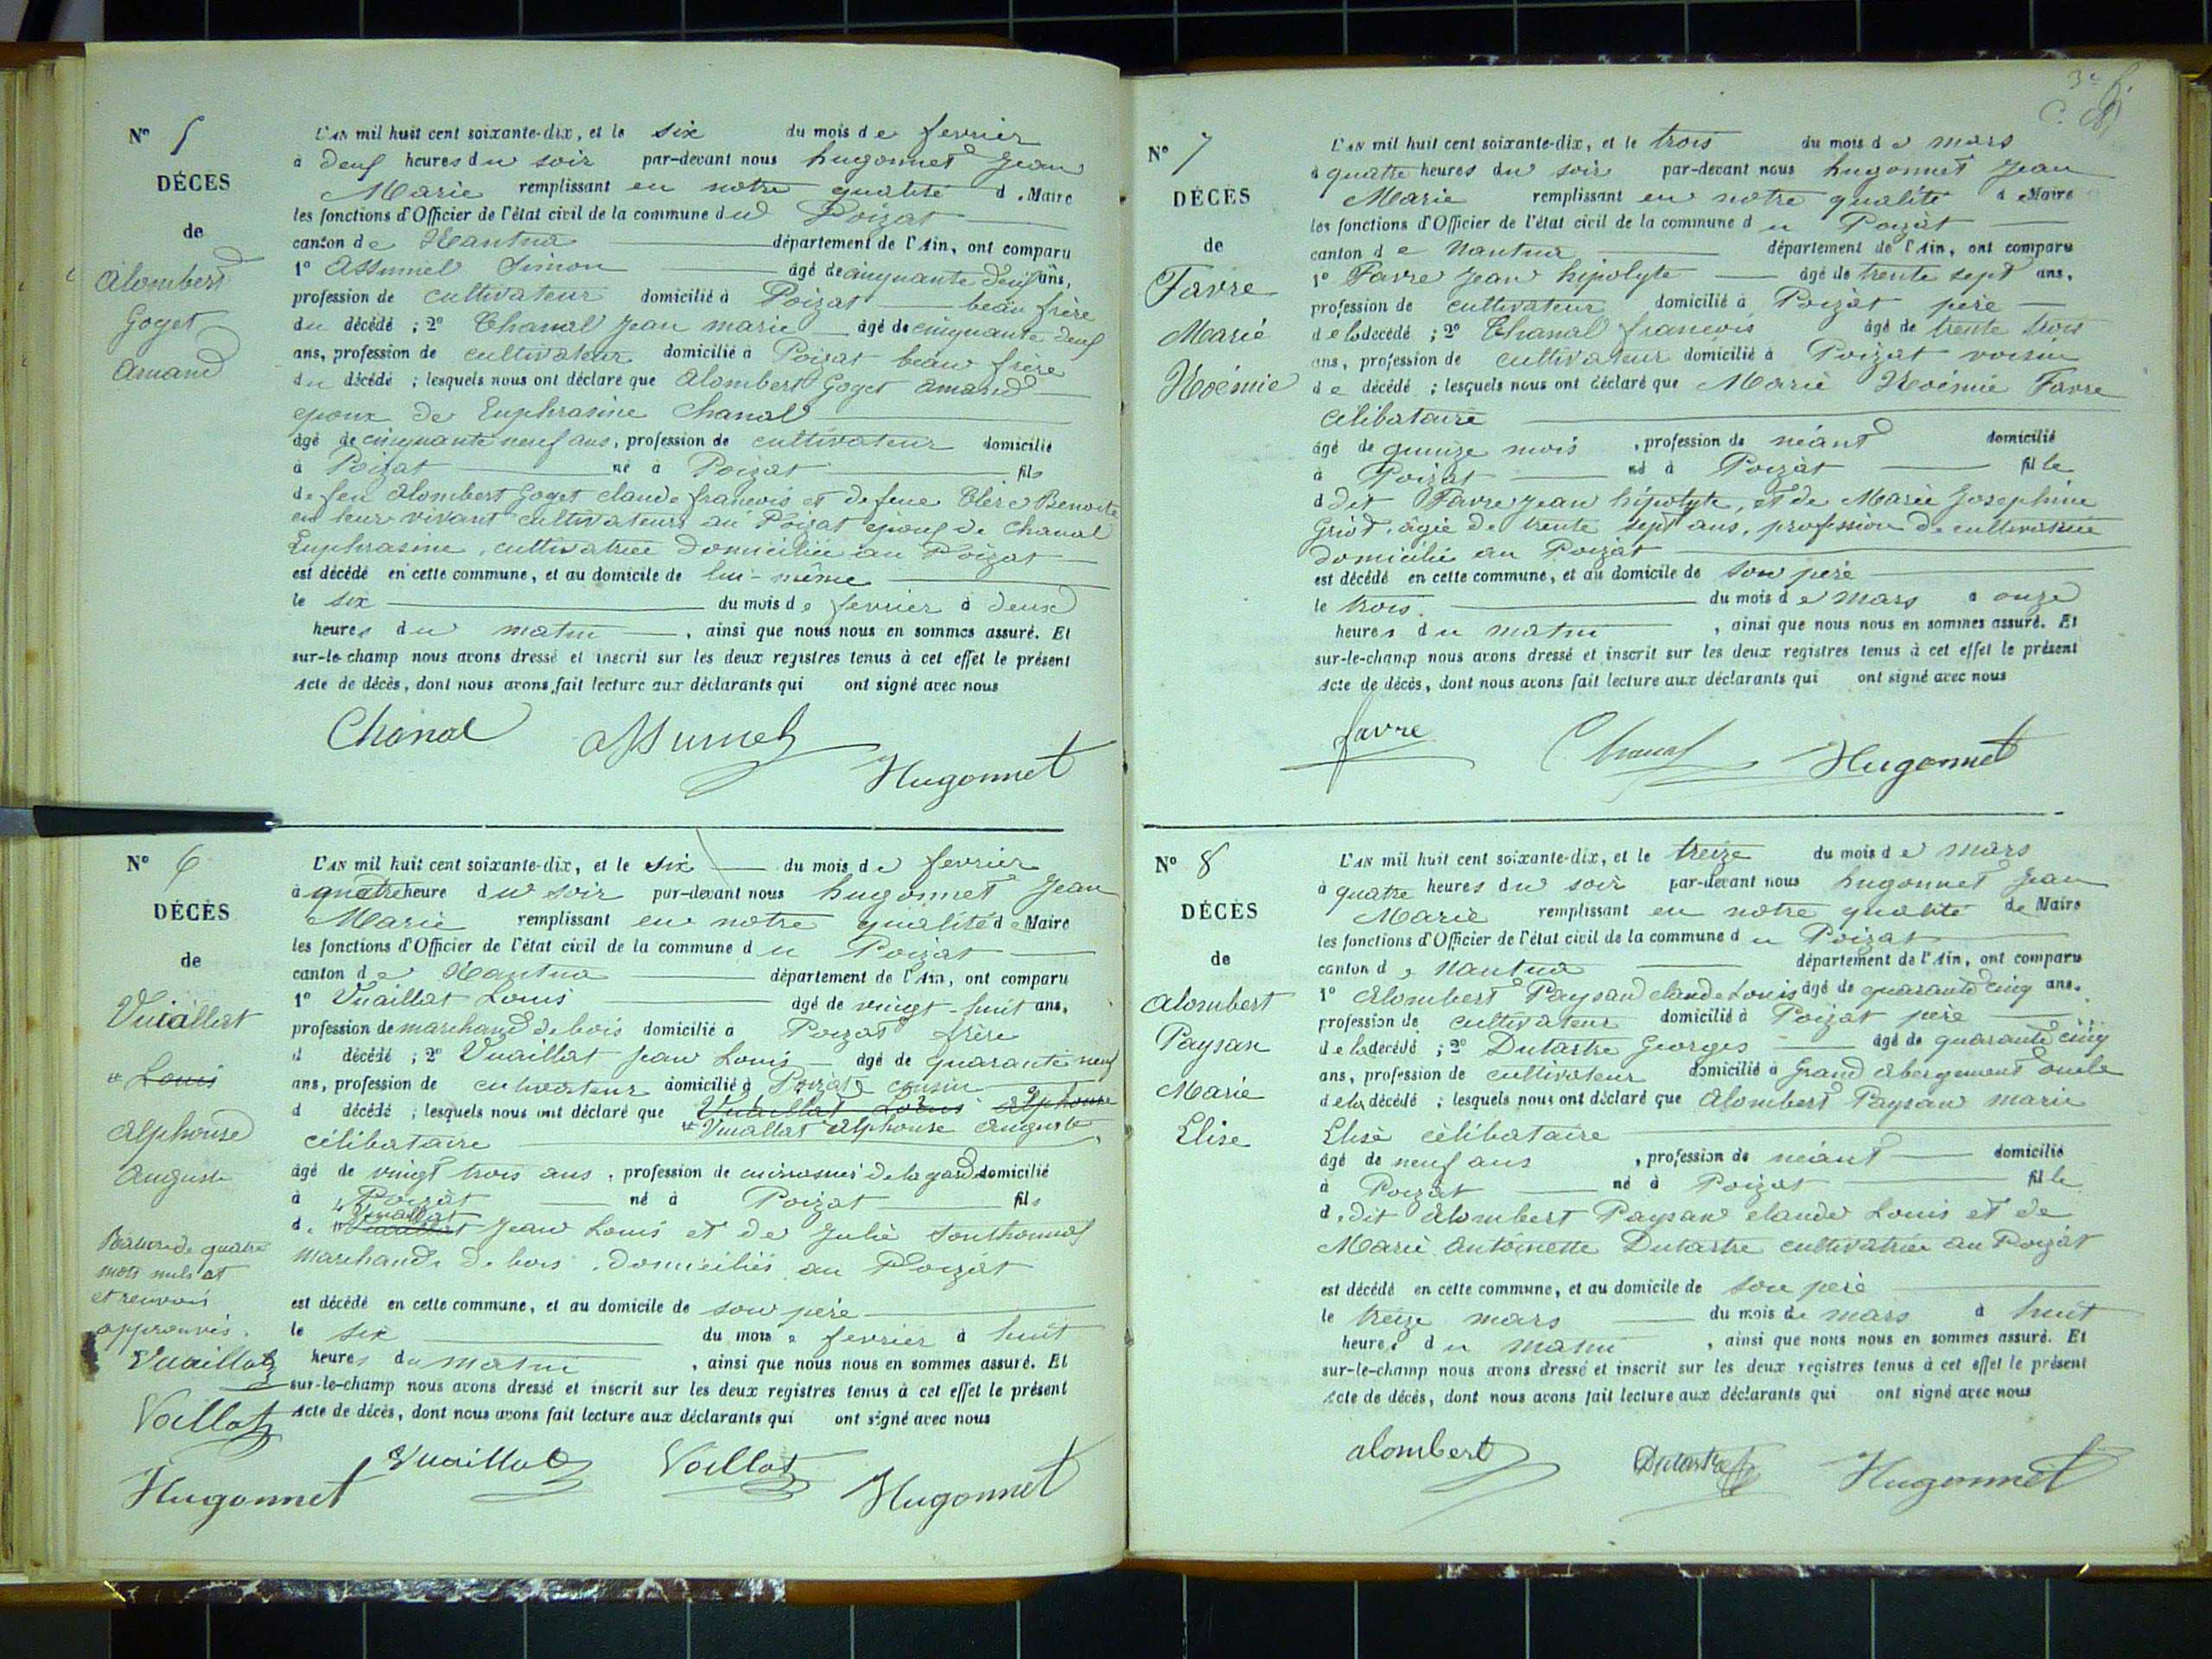 N° 5
DÉCES
de
Alombert
Goget
Amand
L'AN mil huit cent soixante-dix, et le six du mois de fevrier
à deux heures du soir par-devant nous hugonnet Jean
Marie remplissant en notre qualité de Maire
les fonctions d'Officier de l'état civil de la commune du Poizat
canton de Nantua département de l'Ain, ont comparu
1° Assumel Simon âgé de cinquante deux ans,
profession de cultivateur domicilié à Poizat beau frère
du décédé ; 2° Chanal Jean marie âgé de cinquante deux
ans, profession de cultivateur domicilié à Poizat beau frère
du décédé ; lesquels nous ont déclaré que Alombert Goget amand
epoux de Euphrasine Chanal
âgé de cinquante neuf ans, profession de cultivateur domicilié
à Poizat né à Poizat fils
de feu Alombert Goget claude francois et de feue Clerc Benoite
en leur vivant cultivateurs au Poizat epoux de Chanal
Euphrasine, cultivatrice domiciliée au Poizat
est décédé en cette commune, et au domicile de lui-même
le six du mois de fevrier à deux
heures du matin, ainsi que nous nous en sommes assuré. Et
sur-le-champ nous avons dressé et inscrit sur les deux registres tenus à cet effet le présent
acte de décès, dont nous avons fait lecture aux déclarants qui ont signé avec nous
Chanal Assumel
Hugonnet
N° 6
DÉCÈS
de
Vuaillat
# Louis
Alphonse
Auguste
Rature de quatre
mots nuls et
et renvois
approuvés.
Vuaillat
Vaillat
Hugonnet
L'AN mil huit cent soixante-dix, et le six du mois de fevrier
à quatre heure du soir par-devant nous hugonnet Jean
Marie remplissant en notre qualité de Maire
les fonctions d'Officier de l'état civil de la commune du Poizat
canton de Nantua département de l'Ain, ont comparu
1° Vuaillat Louis âgé de vingt-huit ans,
profession de marchand de bois domicilié à Poizat frère
d décédé ; 2° Vuaillat Jean Louis âgé de quarante neuf
ans, profession de cultivateur domicilié à Poizat cousin
d décédé ; lesquels nous ont déclaré que Vuaillat Louis Alphonse
# Vuaillat Alphonse Auguste
célibataire
âgé de vingt trois ans, profession de cuirassier de la garde domicilié
à Poizat né à Poizat fils
# Vuaillat
de # Vuaillat Jean Louis et de Julie Sonthonnas
marchands de bois, domiciliés au Poizat
est décédé en cette commune, et au domicile de son père
le six du mois e fevrier à huit
heures du matin, ainsi que nous nous en sommes assuré. Et
sur-le-champ nous avons dressé et inscrit sur les deux registres tenus à cet effet le présent
acte de décès, dont nous avons fait lecture aux déclarants qui ont signé avec nous
Vuaillat Vaillat Hugonnet
3e f.
N° 7
DÉCÈS
de
Favre
Marie
Noémie
L'AN mil huit cent soixante-dix, et le trois du mois de mars
à quatre heures du soir par-devant nous hugonnet Jean
Marie remplissant en notre qualité de Maire
les fonctions d'Officier de l'état civil de la commune du Poizat
canton de Nantua département de l'Ain, ont comparu
1° Favre Jean hipolyte âgé de trente sept ans,
profession de cultivateur domicilié à Poizat père
de la décédé ; 2° Chanal francois âgé de trente trois
ans, profession de cultivateur domicilié à Poizat voisin
de décédé ; lesquels nous ont déclaré que Marie Noémie Favre
célibataire
âgé de quinze mois, profession de néant domicilié
à Poizat né à Poizat fille
d dit Favre Jean hipolyte, et de Marie Josephine
Griot, agée de trente sept ans, profession de cultivatrice
domicilié au Poizat
est décédé en cette commune, et au domicile de son père
le trois. du mois de mars à onze
heures du matin, ainsi que nous nous en sommes assuré. Et
sur-le-champ nous avons dressé et inscrit sur les deux registres tenus à cet effet le présent
acte de décès, dont nous avons fait lecture aux déclarants qui ont signé avec nous
favre Chanal Hugonnet
N° 8
DÉCÈS
de
Alombert
Paysan
Marie
Elise
L'AN mil huit cent soixante-dix, et le treize du mois de mars
à quatre heures du soir par-devant nous hugonnet Jean
Marie remplissant en notre qualité de Maire
les fonctions d'Officier de l'état civil de la commune du Poizat
canton de Nantua département de l'Ain, ont comparu
1° Alombert Paysan claude Louis âgé de quarante cinq ans.
profession de cultivateur domicilié à Poizat père
de la décédé ; 2° Dutartre Georges âgé de quarante cinq
ans, profession de cultivateur domicilié à Grand abergement oncle
de la décédé ; lesquels nous ont déclaré que Alombert Paysan marie
Elise célibataire
âgé de neuf ans, profession de néant domicilié
à Poizat né à Poizat fille
d. dit Alombert Paysan claude Louis et de
Marie Antoinette Dutartre cultivatrice au Poizat
est décédé en cette commune, et au domicile de son père
le treize mars du mois de mars à huit
heures du matin, ainsi que nous nous en sommes assuré. Et
sur-le-champ nous avons dressé et inscrit sur les deux registres tenus à cet effet le présent
acte de décès, dont nous avons fait lecture aux déclarants qui ont signé avec nous
alombert Dutartre Hugonnet